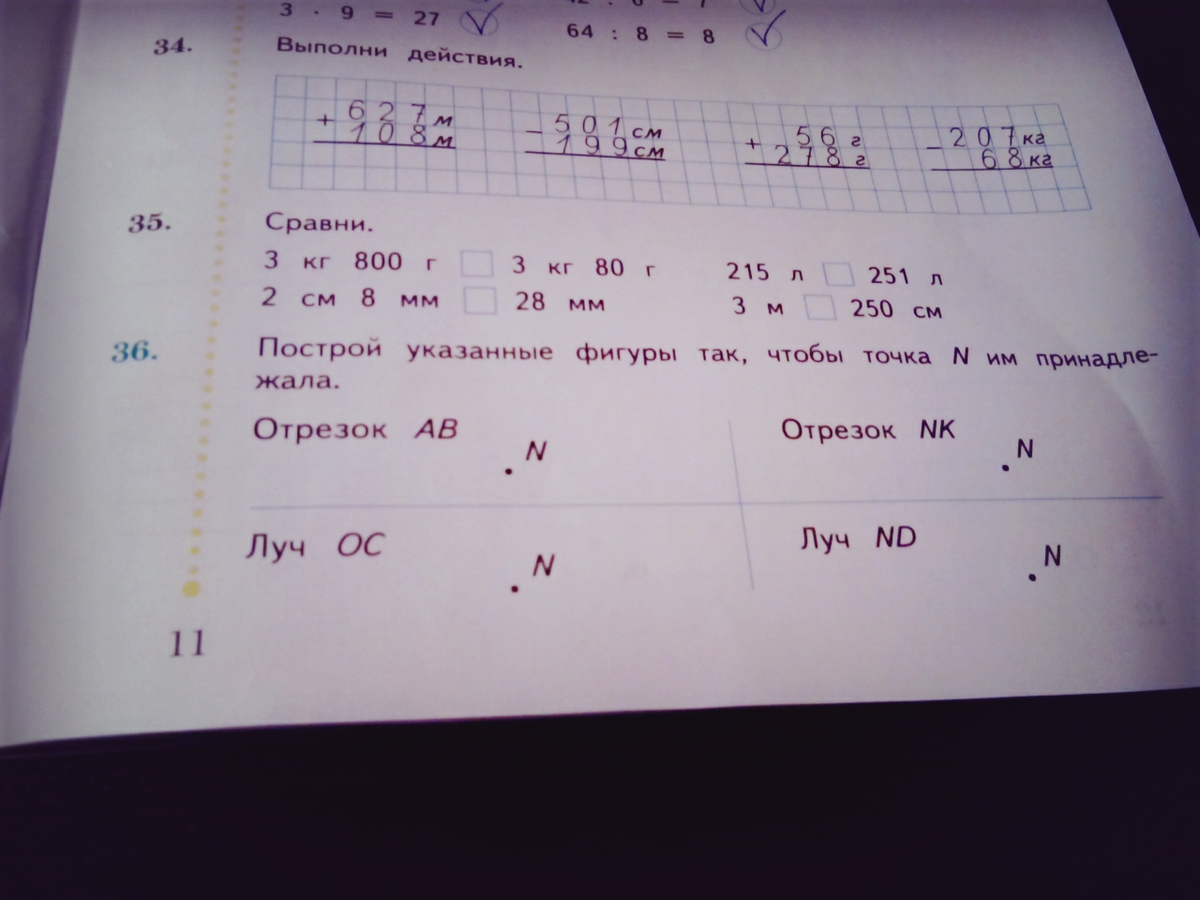 3 · 9 = 27
64 : 8 = 8
34. Выполни действия.
+ 627 м
108 м
− 501 см
199 см
+ 56 г
278 г
− 207 кг
68 кг
35. Сравни.
3 кг 800 г □ 3 кг 80 г 215 л □ 251 л
2 см 8 мм □ 28 мм 3 м □ 250 см
36. Построй указанные фигуры так, чтобы точка N им принадле-
жала.
Отрезок AB
N
Отрезок NK
N
Луч OC
N
Луч ND
N
11